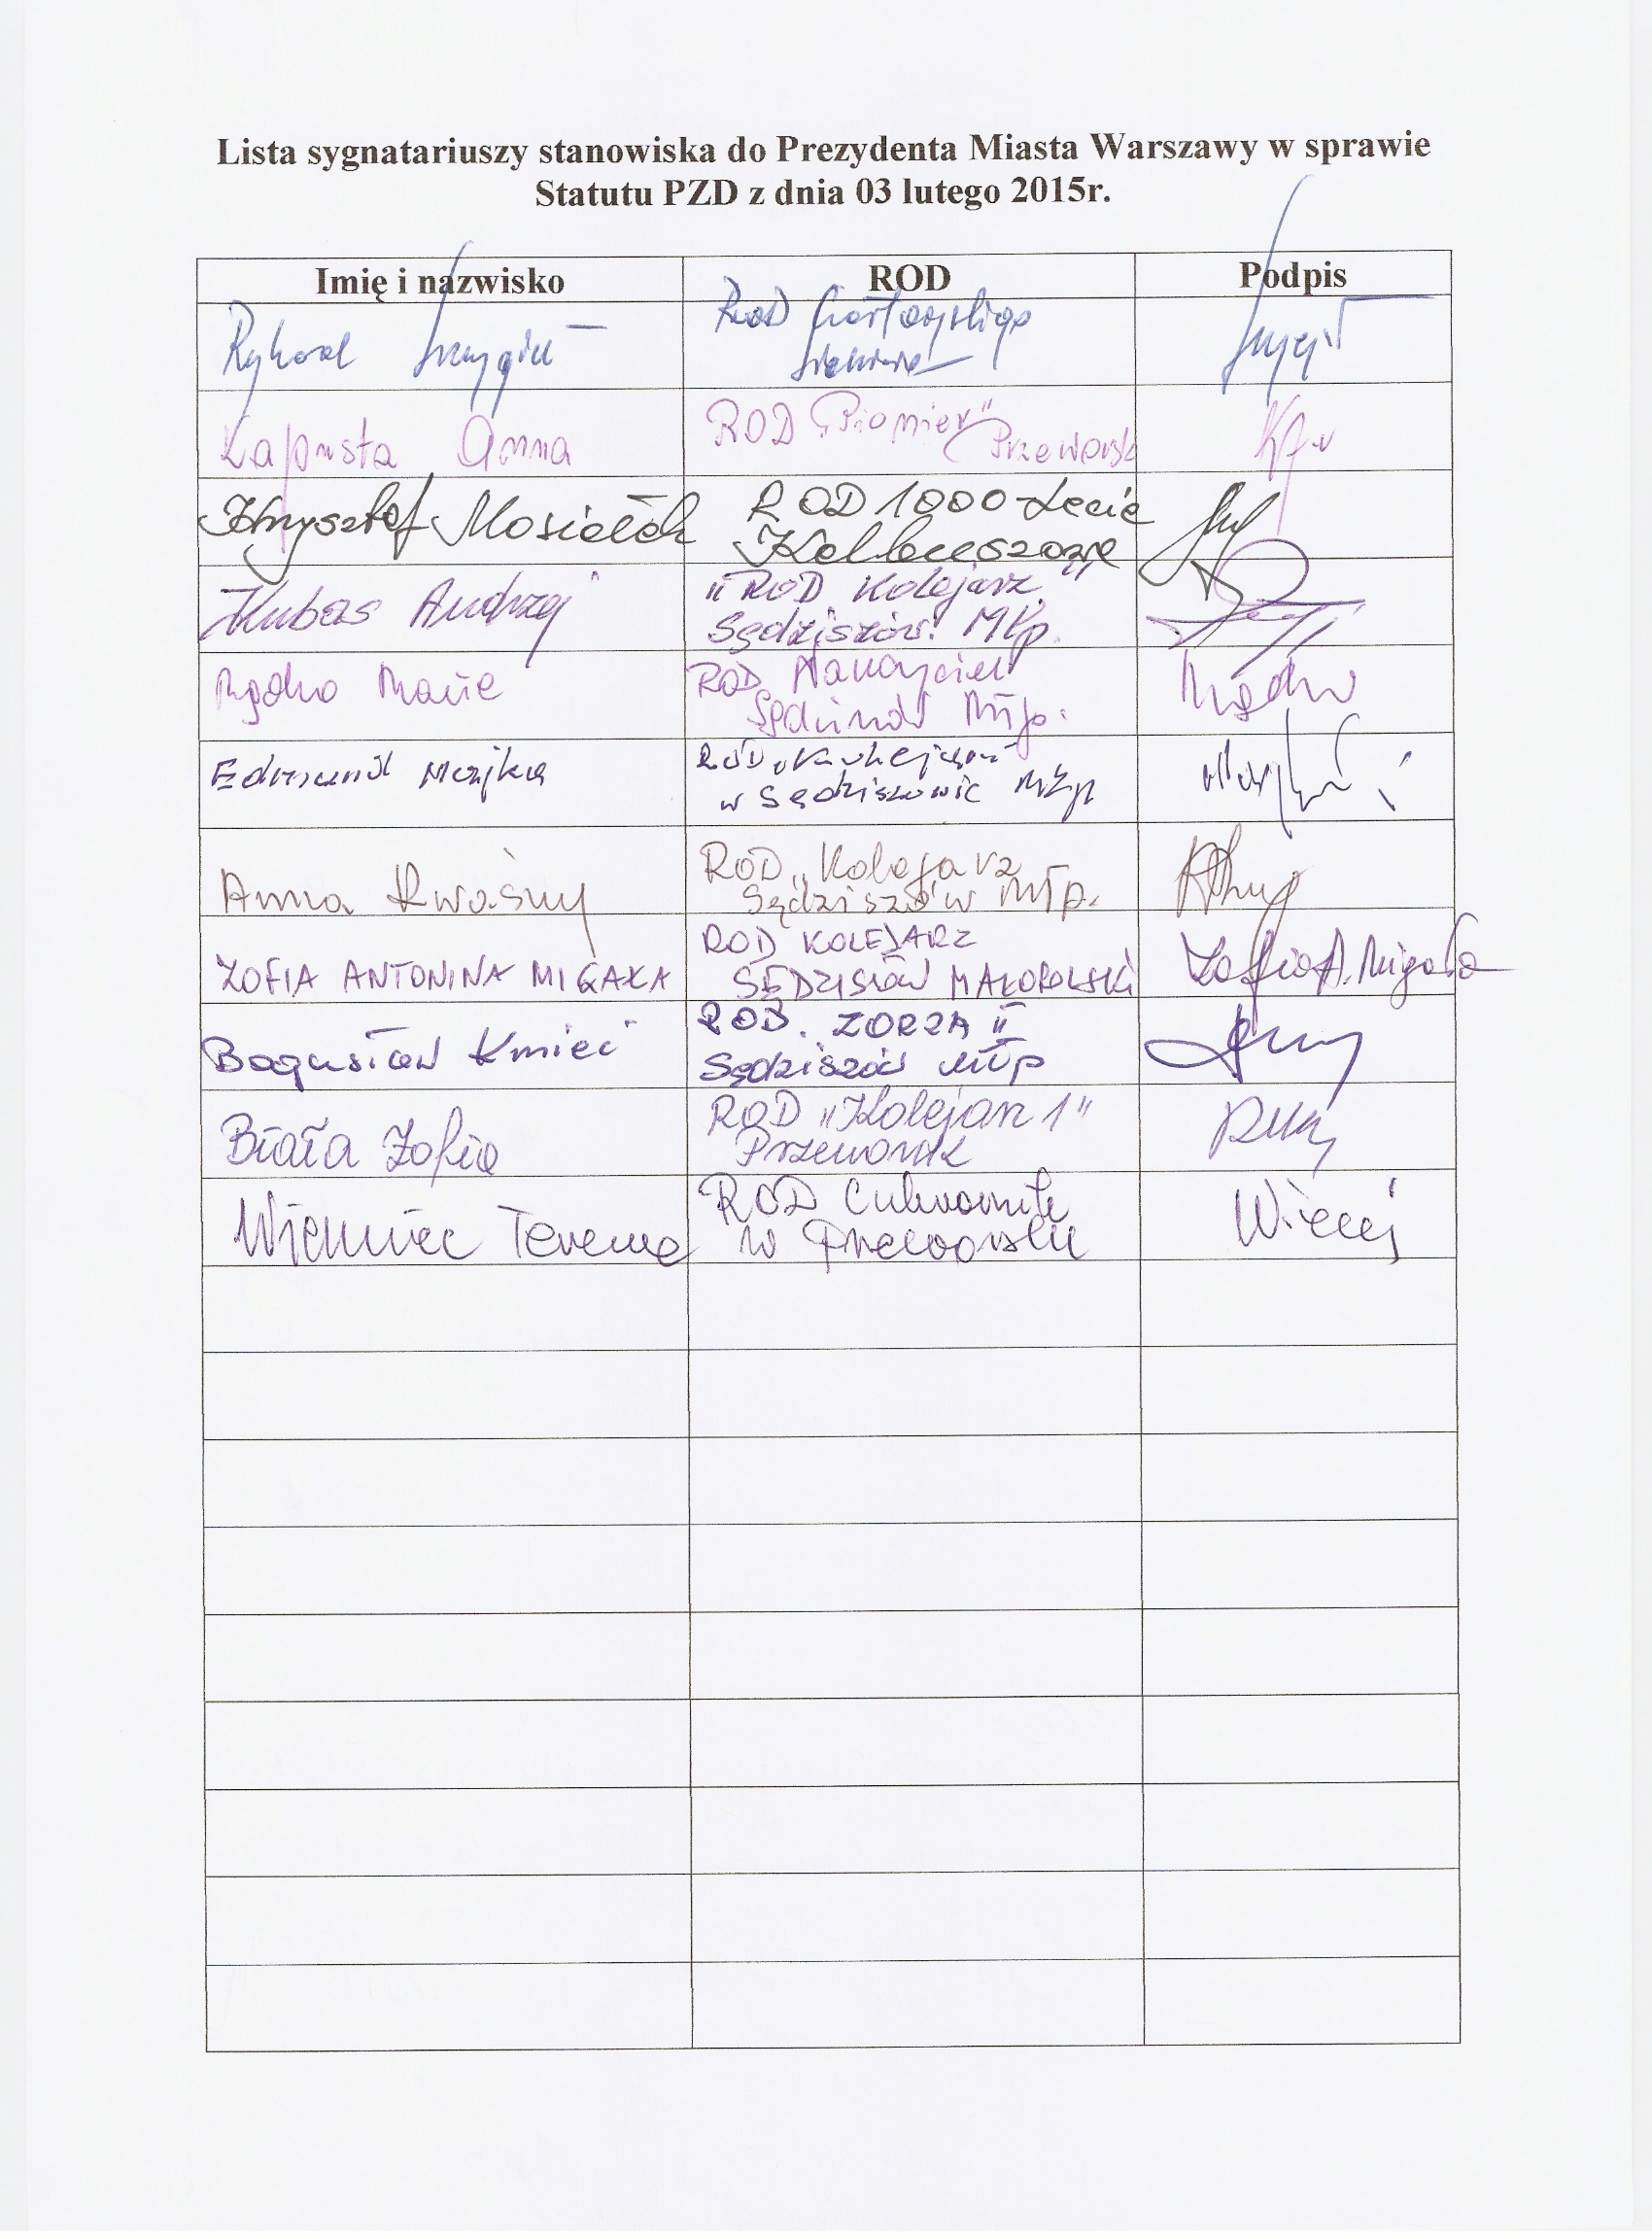 Lista sygnatariuszy stanowiska do Prezydenta Miasta Warszawy w sprawie
Statutu PZD z dnia 03 lutego 2015r.
Imię i nazwisko ROD Podpis
ROD
Kapusta Anna ROD „Pionier" Przeworsk
Krzysztof Mosiołek ROD 1000-Lecie
Kolbuszowa
Kubas Andrzej "ROD Kolejarz"
Sędziszów Młp.
ROD Nauczyciel
Sędziszów Młp.
Edmund Majka ROD
w Sędziszowie Młp
Anna Kwaśny ROD „Kolejarz
Sędziszów Młp.
ZOFIA ANTONINA MIGAŁA ROD KOLEJARZ
SĘDZISZÓW MAŁOPOLSKI Zofia A. Migała
Bogusław Kmieć ROD. ZORZA II
Sędziszów Młp
Biała Zofia ROD „Kolejarz 1"
Przeworsk
ROD Cukrownik
w Przeworsku